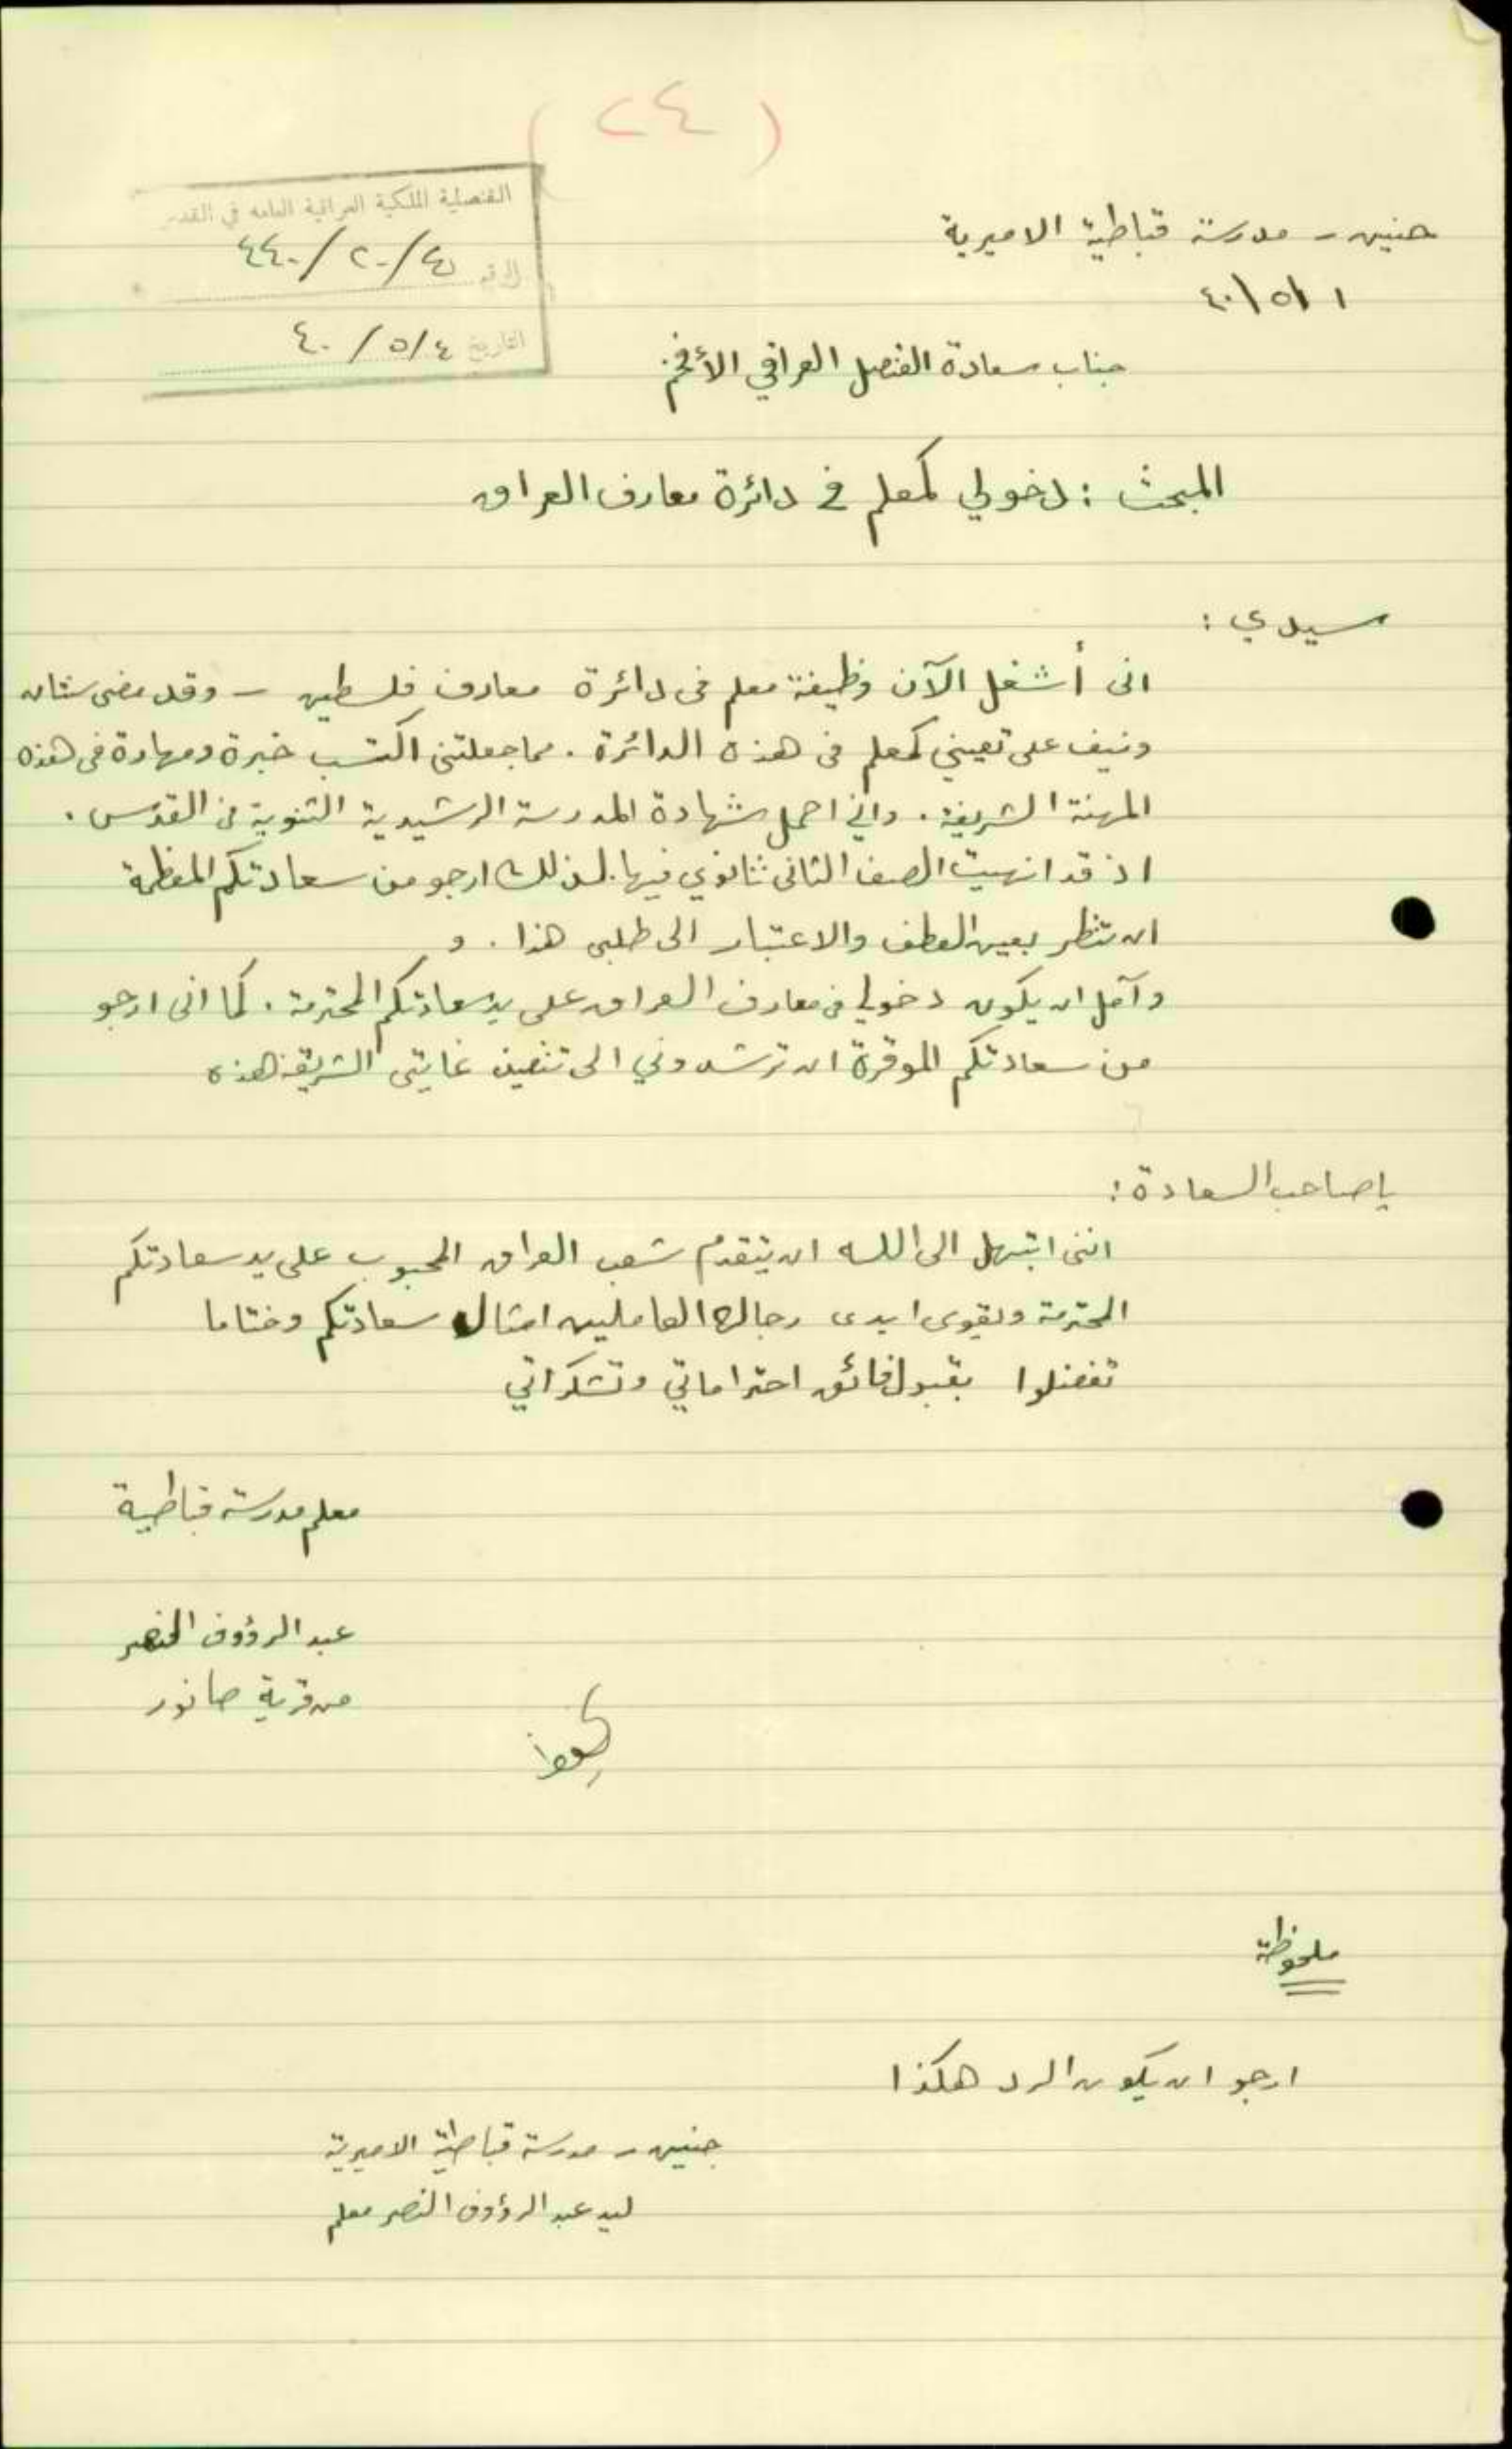 (٢٤)
القنصلية الملكية العراقية العامة في القدس
الرقم
التاريخ ٤/٥/٤٠
جنين - مدرسة قباطية الاميرية
١/٥/٤٠
جناب سعادة القنصل العراقي الأفخم
المبحث : دخولي كمعلم في دائرة معارف العراق
سيدي :
انى أشغل الآن وظيفة معلم فى دائرة معارف فلسطين - وقد مضى سنتان
ونيف على تعييني كمعلم فى هذه الدائرة . مما جعلتنى اكتسب خبرة ومهارة فى هذه
المهنة الشريفة . واني احمل شهادة المدرسة الرشيدية الثنوية في القدس .
اذ قد انهيت الصف الثانى ثانوي فيها . لذلك ارجو من سعادتكم المعظمة
ان تنظر بعين العطف والاعتبار الى طلبى هذا . و
وآمل ان يكون دخولي في معارف العراق على يد سعادتكم المحترمة . كما انى ارجو
من سعادتكم الموقرة ان ترشدوني الى تنفيذ غايتى الشريفة هذه
يا صاحب السعادة :
اننى ابتهل الى الله ان يتقدم شعب العراق المحبوب على يد سعادتكم
المحترمة ويقوى ايدى رجاله العاملين امثال سعادتكم وختاما
تفضلوا بقبول فائق احتراماتي وتشكراتي
معلم مدرسة قباطية
عبد الرؤوف النصر
من قرية صانور
ملحوظة
ارجو ان يكون الرد هكذا
جنين - مدرسة قباطية الاميرية
ليد عبد الرؤوف النصر معلم